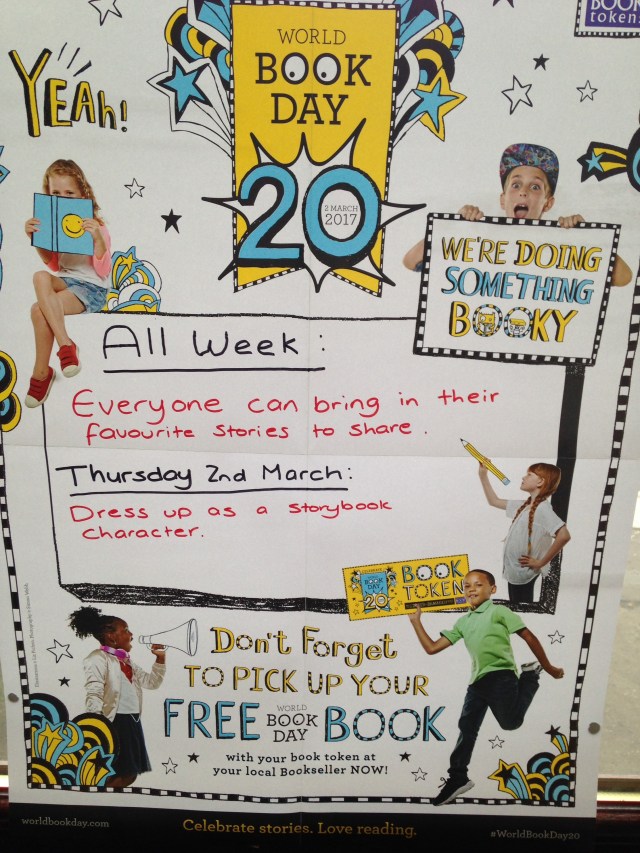 BOOK
token
WORLD
BOOK
DAY
YEAh!
20
2 MARCH
2017
WE'RE DOING
SOMETHING
BOOKY
All Week :
Everyone can bring in their
favourite stories to share .
Thursday 2nd March:
Dress up as a storybook
character.
WORLD
BOOK
DAY
20
BOOK
TOKEN
Don't Forget
TO PICK UP YOUR
FREE WORLD BOOK DAY BOOK
with your book token at
your local Bookseller NOW!
worldbookday.com
Celebrate stories. Love reading.
#WorldBookDay20